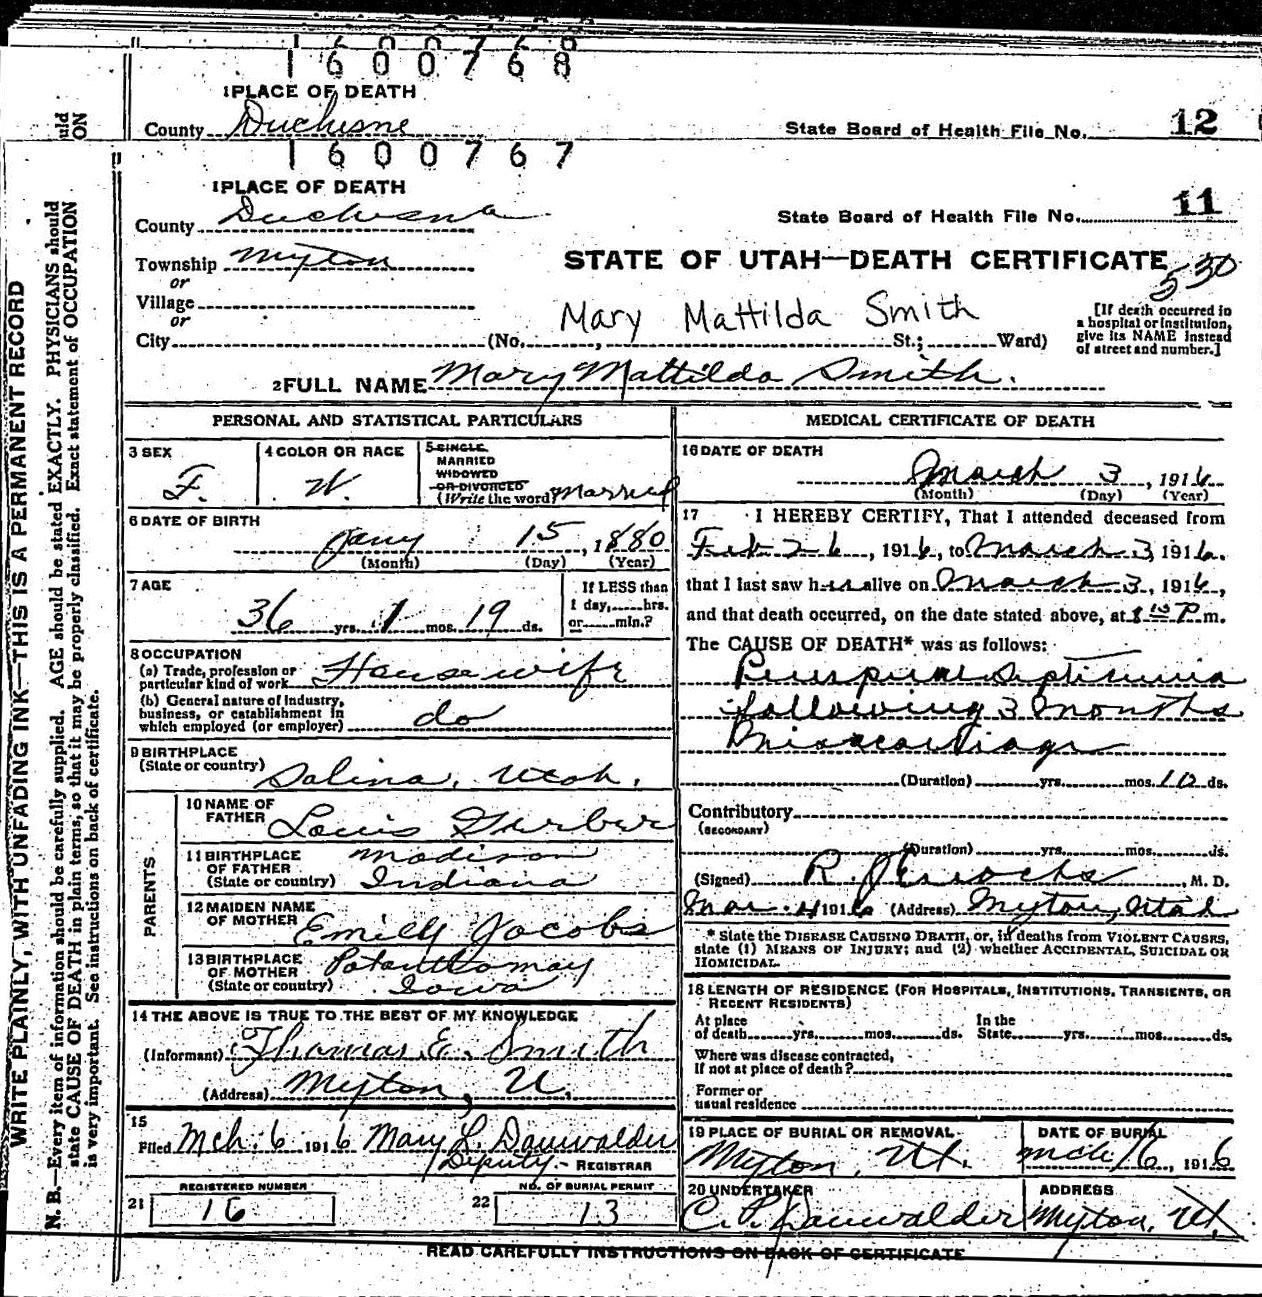 1600768
1 PLACE OF DEATH
County Duchesne
State Board of Health File No. 12
1600767
1 PLACE OF DEATH
County Duchesne
State Board of Health File No. 11
Township Myton
or
Village
or
City
STATE OF UTAH—DEATH CERTIFICATE
530
Mary Mattilda Smith
(No. , St.; Ward)
[If death occurred in
a hospital or institution,
give its NAME instead
of street and number.]
2 FULL NAME Mary Mattilda Smith.
PERSONAL AND STATISTICAL PARTICULARS
3 SEX
F.
4 COLOR OR RACE
W.
5 SINGLE
MARRIED
WIDOWED
OR DIVORCED
(Write the word) Married
6 DATE OF BIRTH
Jany 15, 1880
(Month) (Day) (Year)
7 AGE
36 yrs. 1 mos. 19 ds.
If LESS than
1 day, hrs.
or min.?
8 OCCUPATION
(a) Trade, profession or
particular kind of work Housewife
(b) General nature of industry,
business, or establishment in
which employed (or employer) do
9 BIRTHPLACE
(State or country) Salina, Utah.
PARENTS
10 NAME OF
FATHER Louis Gerber
11 BIRTHPLACE
OF FATHER
(State or country)
Madison
Indiana
12 MAIDEN NAME
OF MOTHER Emily Jacobs
13 BIRTHPLACE
OF MOTHER
(State or country)
Iowa
14 THE ABOVE IS TRUE TO THE BEST OF MY KNOWLEDGE
(Informant) Thomas E. Smith
(Address) Myton, U.
15
Filed Mch. 6 1916 Mary L. Dauwalder
Deputy - REGISTRAR
REGISTERED NUMBER
21 16
NO. OF BURIAL PERMIT
22 13
MEDICAL CERTIFICATE OF DEATH
16 DATE OF DEATH
March 3, 1916
(Month) (Day) (Year)
17 I HEREBY CERTIFY, That I attended deceased from
Feb 26, 1916, to March 3, 1916.
that I last saw her alive on March 3, 1916,
and that death occurred, on the date stated above, at 8 15 P m.
The CAUSE OF DEATH* was as follows:
Puerperal Septicemia
following 3 months
Miscarriage
(Duration) yrs. mos. 10 ds.
Contributory
(SECONDARY)
(Duration) yrs. mos. ds.
(Signed) R. , M. D.
Mar. 4 1916 (Address) Myton, Utah
* State the DISEASE CAUSING DEATH, or, in deaths from VIOLENT CAUSES,
state (1) MEANS OF INJURY; and (2) whether ACCIDENTAL, SUICIDAL OR
HOMICIDAL.
18 LENGTH OF RESIDENCE (FOR HOSPITALS, INSTITUTIONS, TRANSIENTS, OR
RECENT RESIDENTS)
At place
of death yrs. mos. ds.
In the
State yrs. mos. ds.
Where was disease contracted,
If not at place of death?
Former or
usual residence
19 PLACE OF BURIAL OR REMOVAL
Myton, Ut.
DATE OF BURIAL
Mch 6, 1916
20 UNDERTAKER
C. P. Dauwalder
ADDRESS
Myton, Ut.
READ CAREFULLY INSTRUCTIONS ON BACK OF CERTIFICATE
uld
ON
WRITE PLAINLY, WITH UNFADING INK—THIS IS A PERMANENT RECORD
N. B.—Every item of information should be carefully supplied. AGE should be stated EXACTLY. PHYSICIANS should
state CAUSE OF DEATH in plain terms, so that it may be properly classified. Exact statement of OCCUPATION
is very important. See instructions on back of certificate.